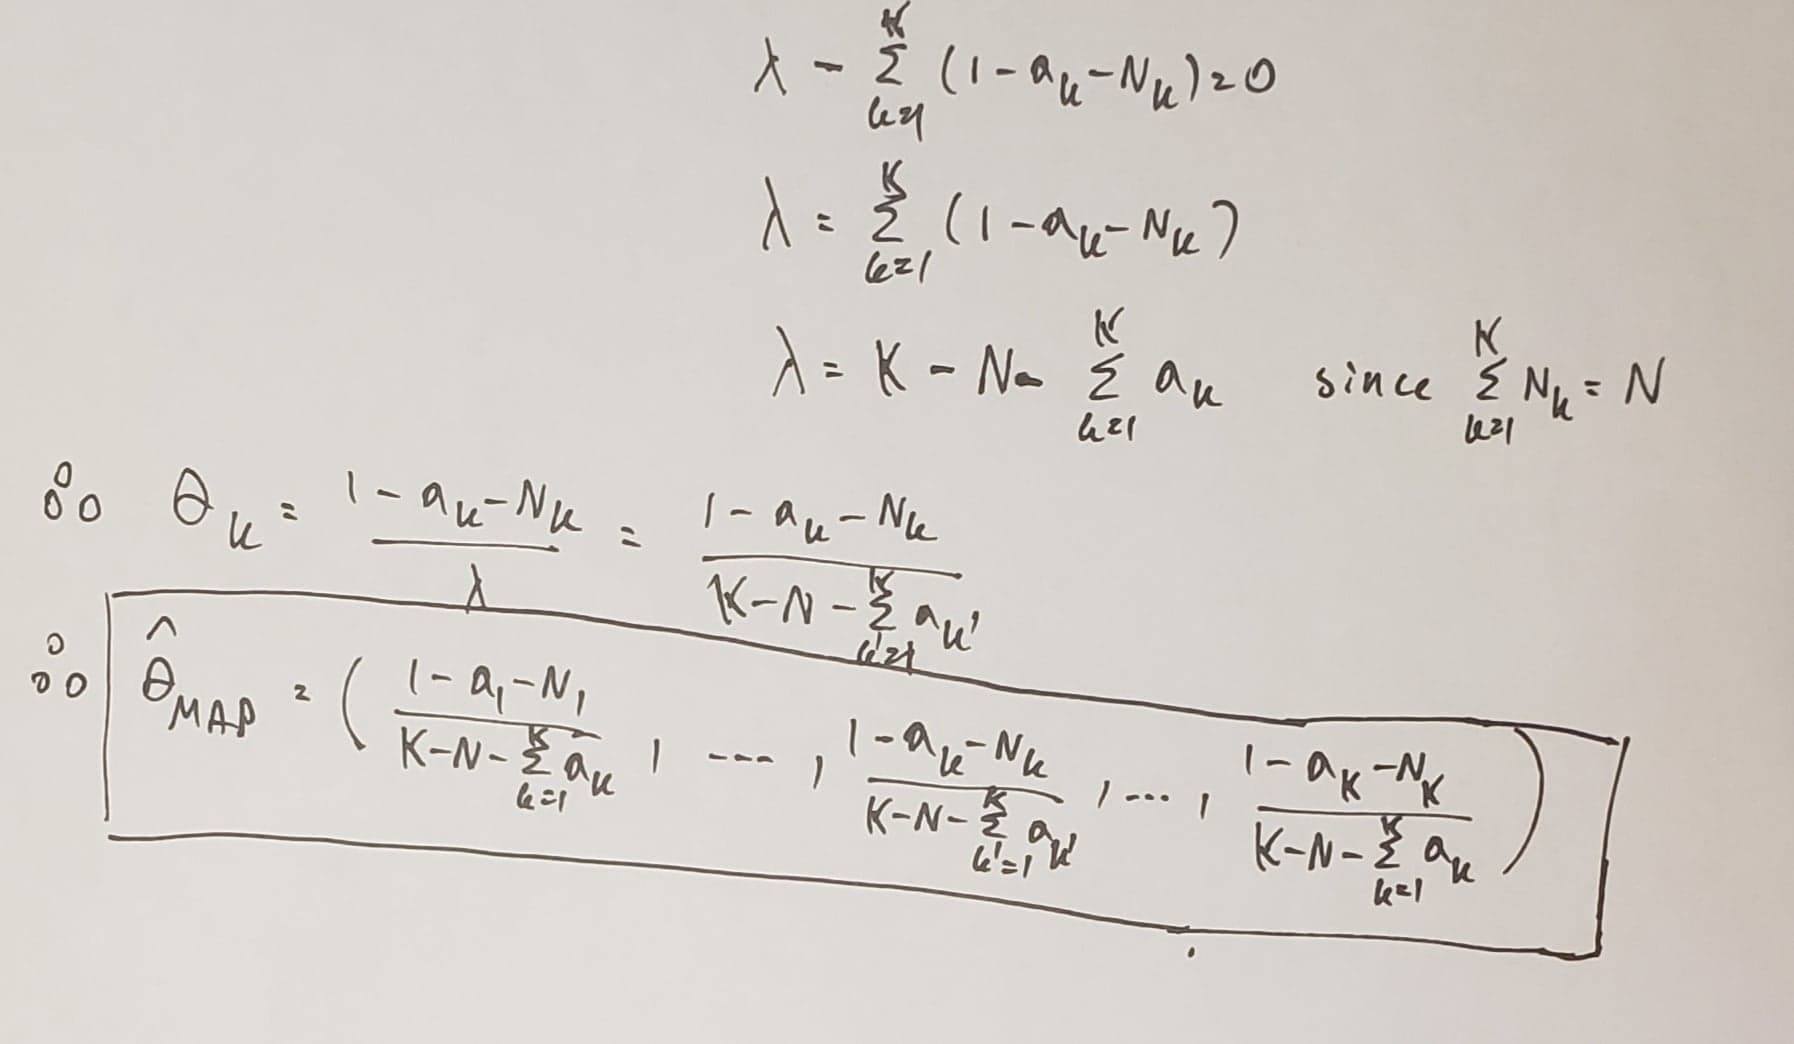 λ - Σ_{k=1}^{K} (1 - a_k - N_k) = 0
λ = Σ_{k=1}^{K} (1 - a_k - N_k)
λ = K - N - Σ_{k=1}^{K} a_k since Σ_{k=1}^{K} N_k = N
∴ θ_k = (1 - a_k - N_k) / λ = (1 - a_k - N_k) / (K - N - Σ_{k'=1}^{K} a_{k'})
∴ θ̂_MAP = ( (1 - a_1 - N_1) / (K - N - Σ_{k=1}^{K} a_k) , --- , (1 - a_k - N_k) / (K - N - Σ_{k'=1}^{K} a_{k'}) , ... , (1 - a_K - N_K) / (K - N - Σ_{k=1}^{K} a_k) )